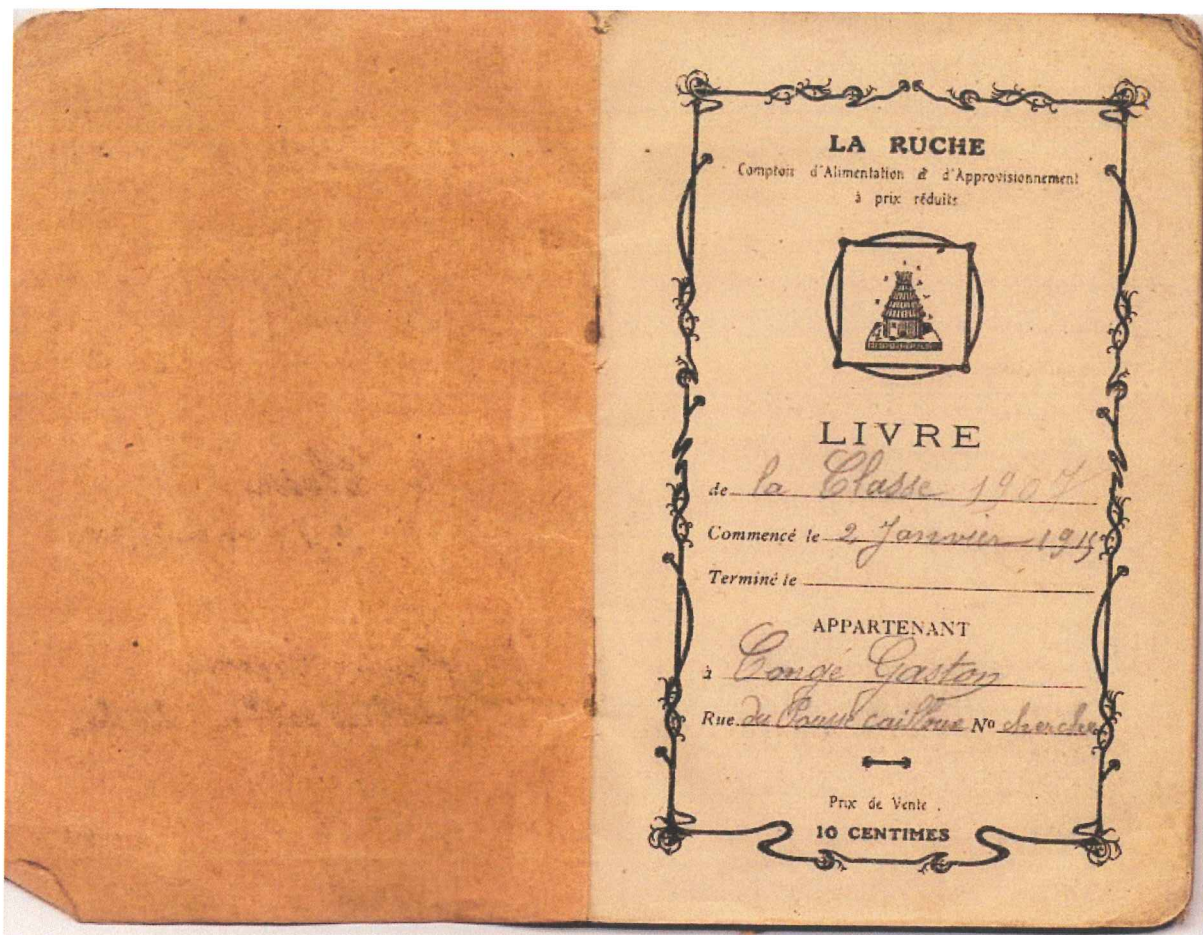 LA RUCHE
Comptoir d'Alimentation & d'Approvisionnement
à prix réduits
LIVRE
de la Classe 1907
Commencé le 2 Janvier 1915
Terminé le
APPARTENANT
à Congé Gaston
Rue du Pousse cailloux No cherchez
Prix de Vente .
10 CENTIMES